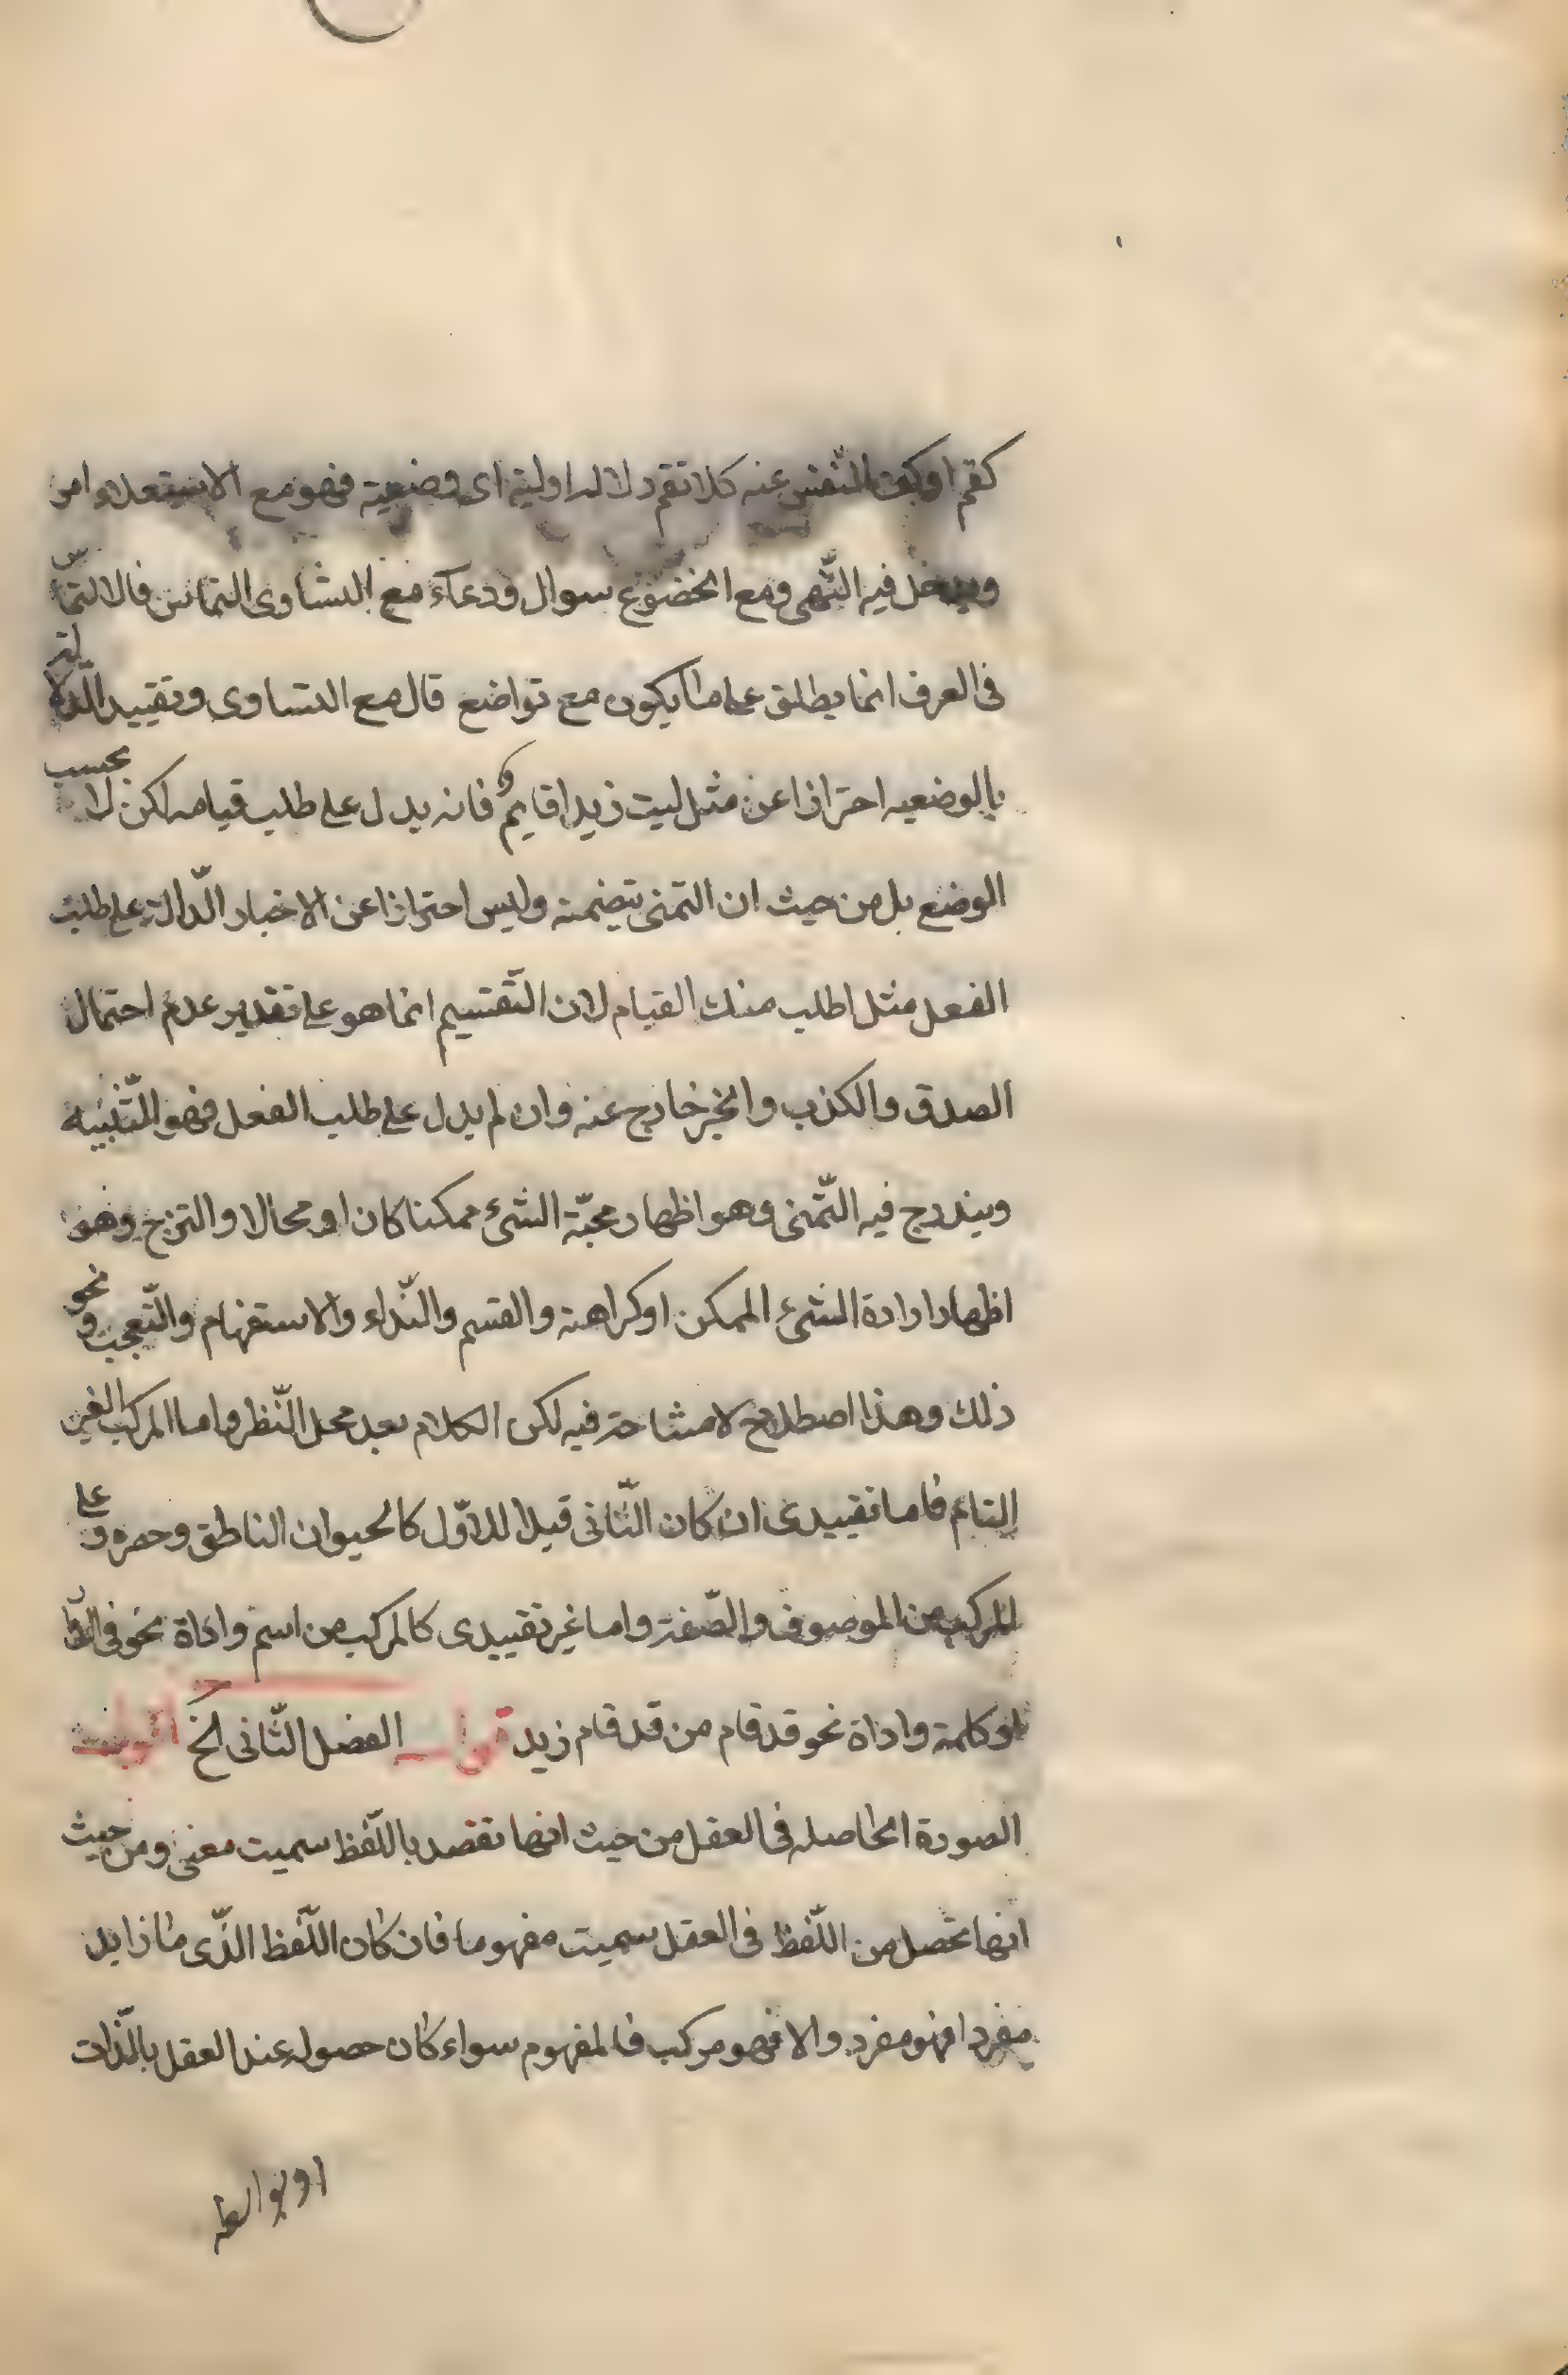 كقم او كف النفس عنه كلا تقم دلالة اولية اى وضعية فهو مع الاستعلاء امر
ويدخل فيه النّهى ومع الخضوع سوال ودعاء مع التساوى التماس فالالتماس
فى العرف انما يطلق على ما يكون مع تواضع قال مع التساوى وتقييد الدّلالة
بالوضعيه احترازا عن مثل ليت زيدا قايم فانه يدل على طلب قيامه لكن لا بحسب
الوضع بل من حيث ان التمنى يتضمنه وليس احترازا عن الاخبار الدّالة على طلب
الفعل مثل اطلب منك القيام لان التّقسيم انما هو على تقدير عدم احتمال
الصدق والكذب والخبر خارج عنه وان لم يدل على طلب الفعل فهو التّنبيه
ويندرج فيه التّمنى وهو اظهار محبّة الشئ ممكنا كان او محالا والترجى وهو
اظهار ارادة الشئ الممكن او كراهته والقسم والنّداء والاستفهام والتّعجب ونحو
ذلك وهذا اصطلاح لا مشاحة فيه لكن الكلام بعد محل النّظر واما المركب الغير
التام فاما تقييدى ان كان الثّانى قيدا للاوّل كالحيوان الناطق وحصره و على
المركب من الموصوف والصّفة واما غير تقييدى كالمركب من اسم واداة نحو فى الدّار
او كلمة واداة نحو قد قام من قد قام زيد قوله الفصل الثّانى الخ
الصورة الحاصله فى العقل من حيث انها تقصد باللّفظ سميت معنى ومن حيث
انها تحصل من اللّفظ فى العقل سميت مفهوما فان كان اللّفظ الذّى مازايد
مفردا فهو مفرد والا فهو مركب فالمفهوم سواء كان حصوله عند العقل بالذّات
او بواسطة